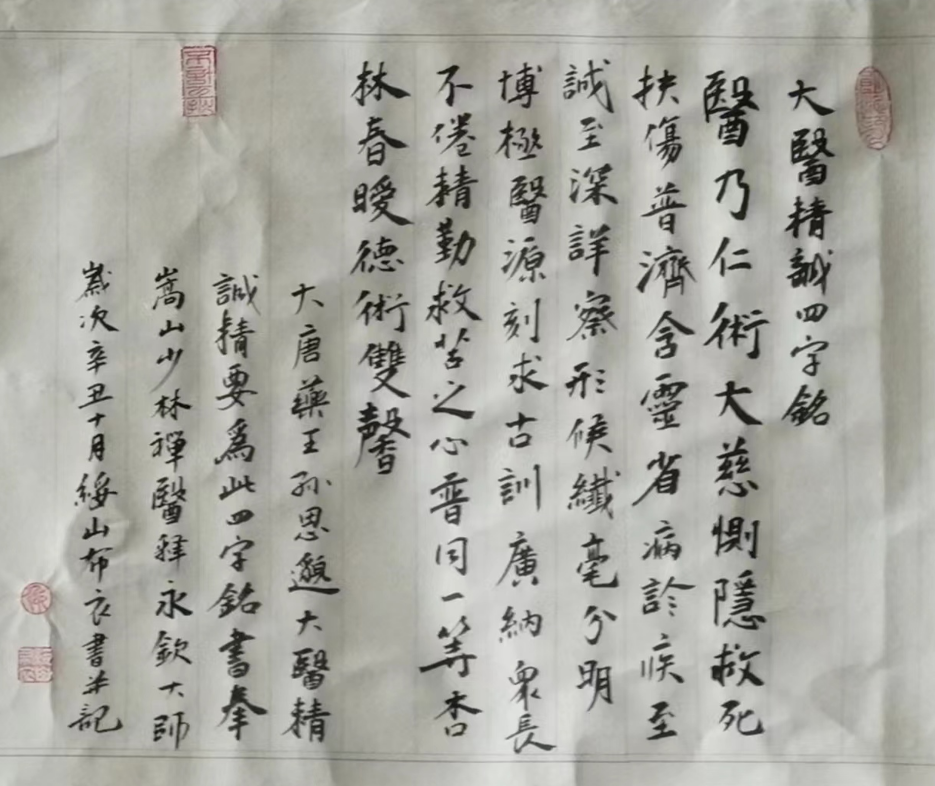 大醫精誠四字銘
醫乃仁術大慈惻隱救死
扶傷普濟含靈省病診疾至
誠至深詳察形候纖毫分明
博極醫源刻求古訓廣納衆長
不倦精勤救苦之心普同一等杏
林春曖德術雙馨
大唐藥王孫思邈大醫精
誠精要為此四字銘書奉
嵩山少林禪醫釋永欽大師
歲次辛丑十月綏山布衣書并記